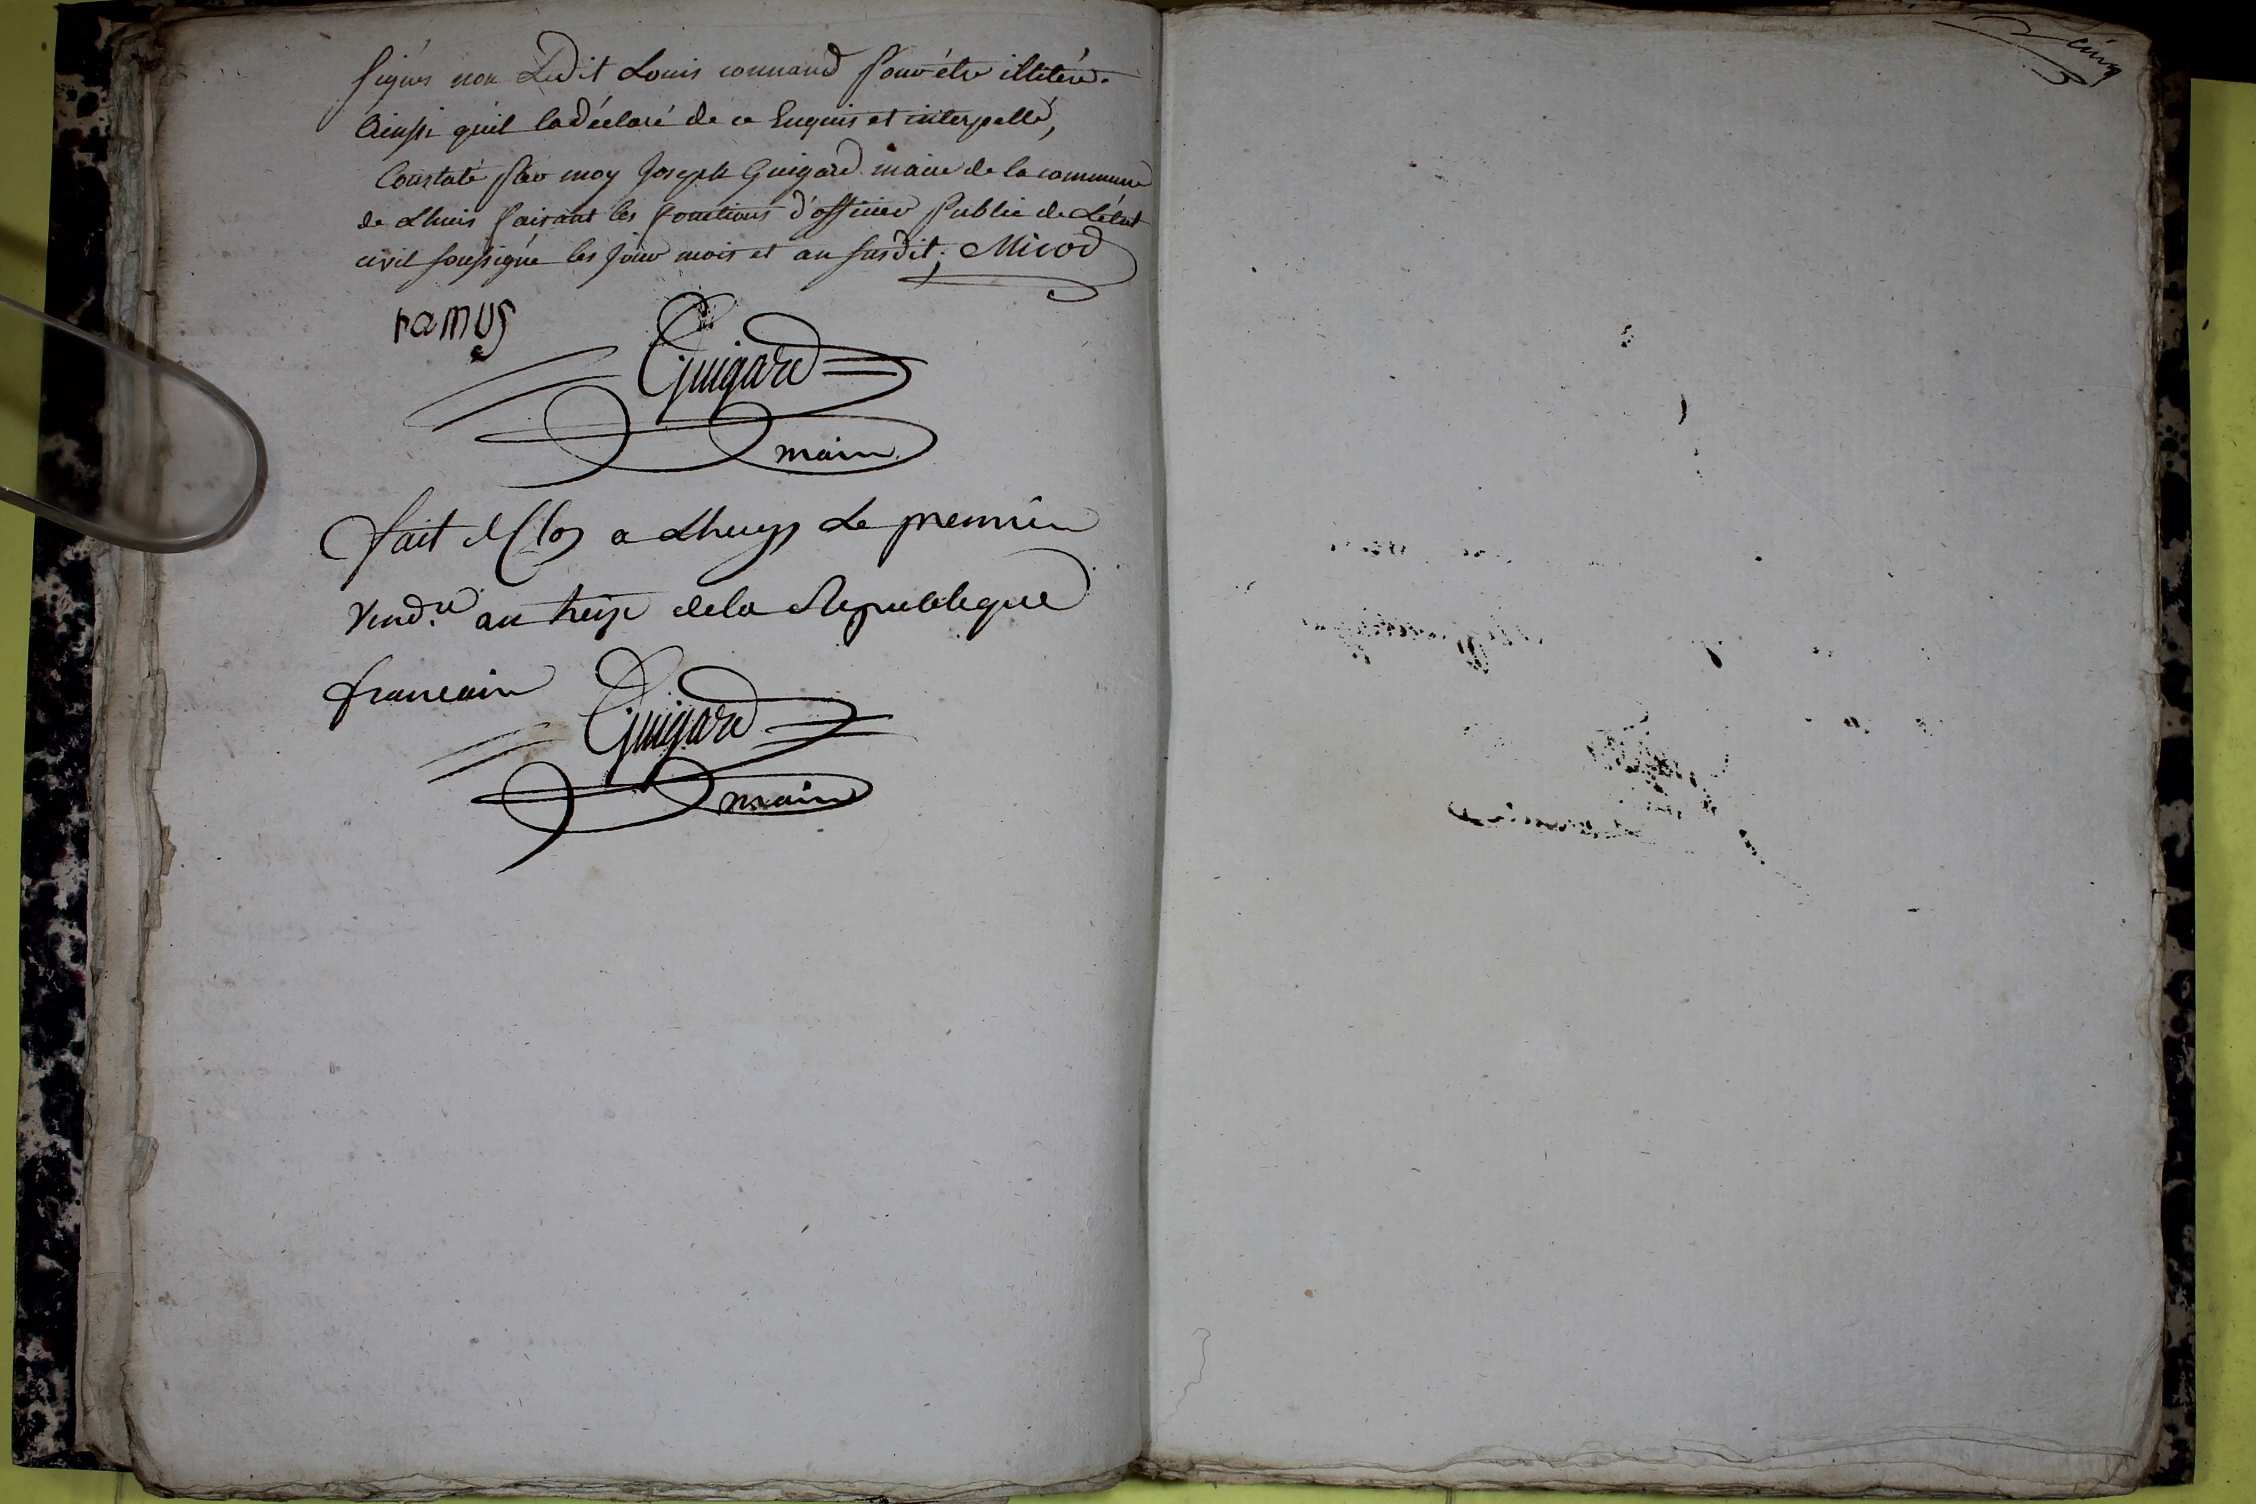 signés non Ledit Louis connand pour être illitéré.
Ainsi qu'il la déclaré de ce Enquis et interpellé,
Constaté par moy Joseph Guigard maire de la commune
de Lhuis faisant les fonctions d'officier public de L'état
civil soussigné les jour mois et an susdit; Micod
ramus
Guigard
maire
fait et Clos a Lhuys Le premier
Vend.re an treize de la Republique
francaise
Guigard
maire